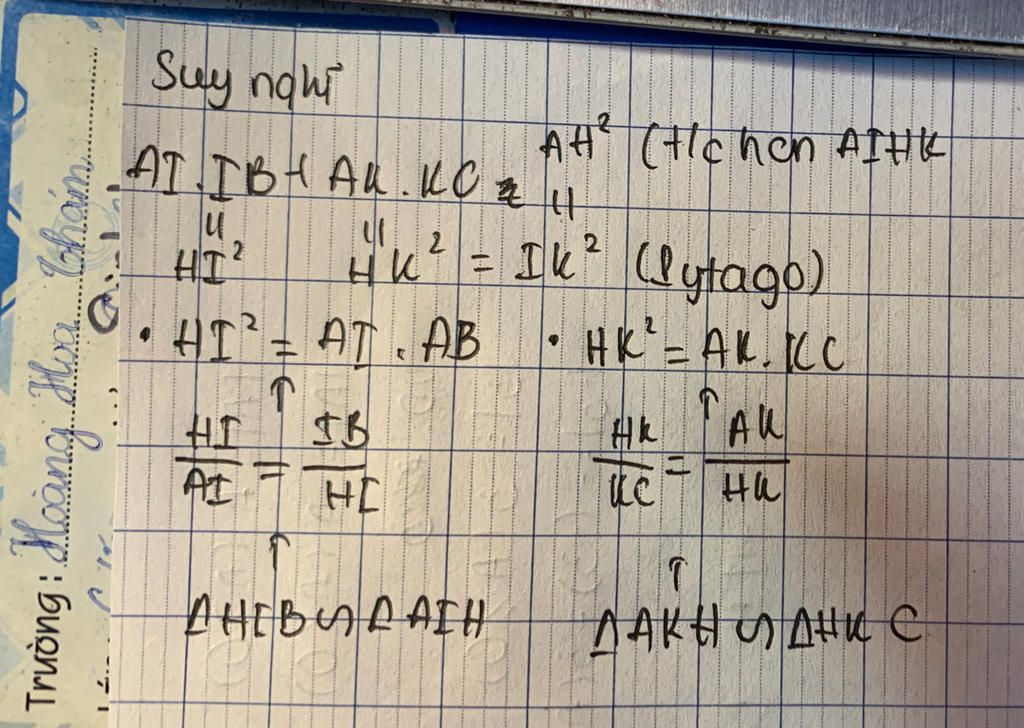 Suy nghĩ
AI.IB + AK.KC = AH² (Hchcn AIHK
" " "
HI² HK² = IK² (Pytago)
• HI² = AI . AB • HK² = AK.KC
↑ ↑
HI/AI = IB/HI HK/KC = AK/HK
↑ ↑
ΔHIB ∽ ΔAIH ΔAKH ∽ ΔHKC
Trường: Hoàng Hoa Thám